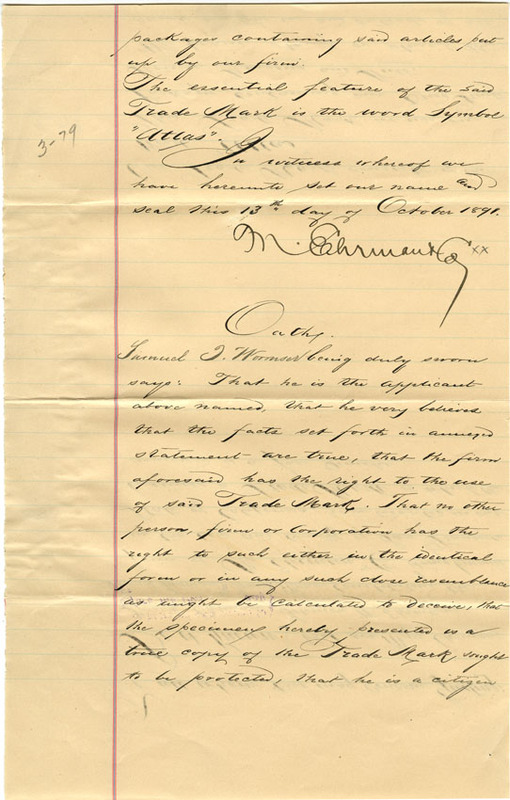 packages containing said articles put
up by our firm.
The essential feature of the said
Trade Mark is the word Symbol
"Atlas".
3-79
In witness whereof we
have hereunto set our name and
seal this 13th day of October 1891.
M. Ehrman & Co xx
Oath.
Samuel I. Wormser being duly sworn
says: That he is the applicant
above named, that he very believes
that the facts set forth in annexed
statement are true, that the firm
aforesaid has the right to the use
of said Trade Mark. That no other
person, firm or Corporation has the
right to such either in the identical
form or in any such close resemblance
as might be calculated to deceive, that
the specimen hereby presented is a
true copy of the Trade Mark, sought
to be protected, that he is a citizen